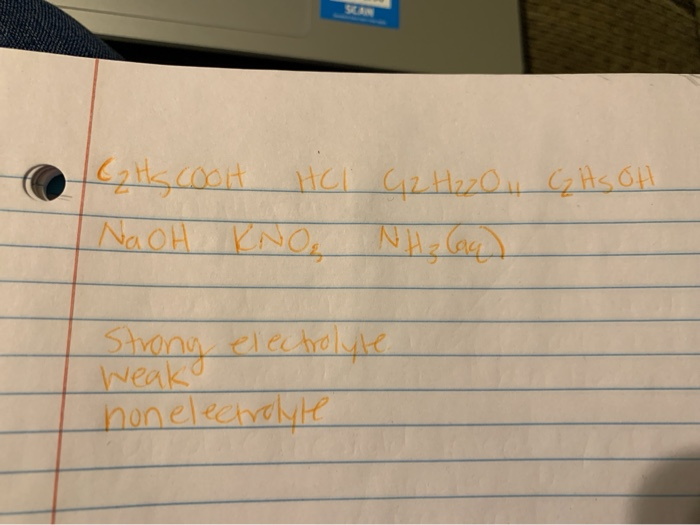 SCAN
C₂H₅COOH HCl C₁₂H₂₂O₁₁ C₂H₅OH
NaOH KNO₃ NH₃(aq)
Strong electrolyte
weak
nonelectrolyte